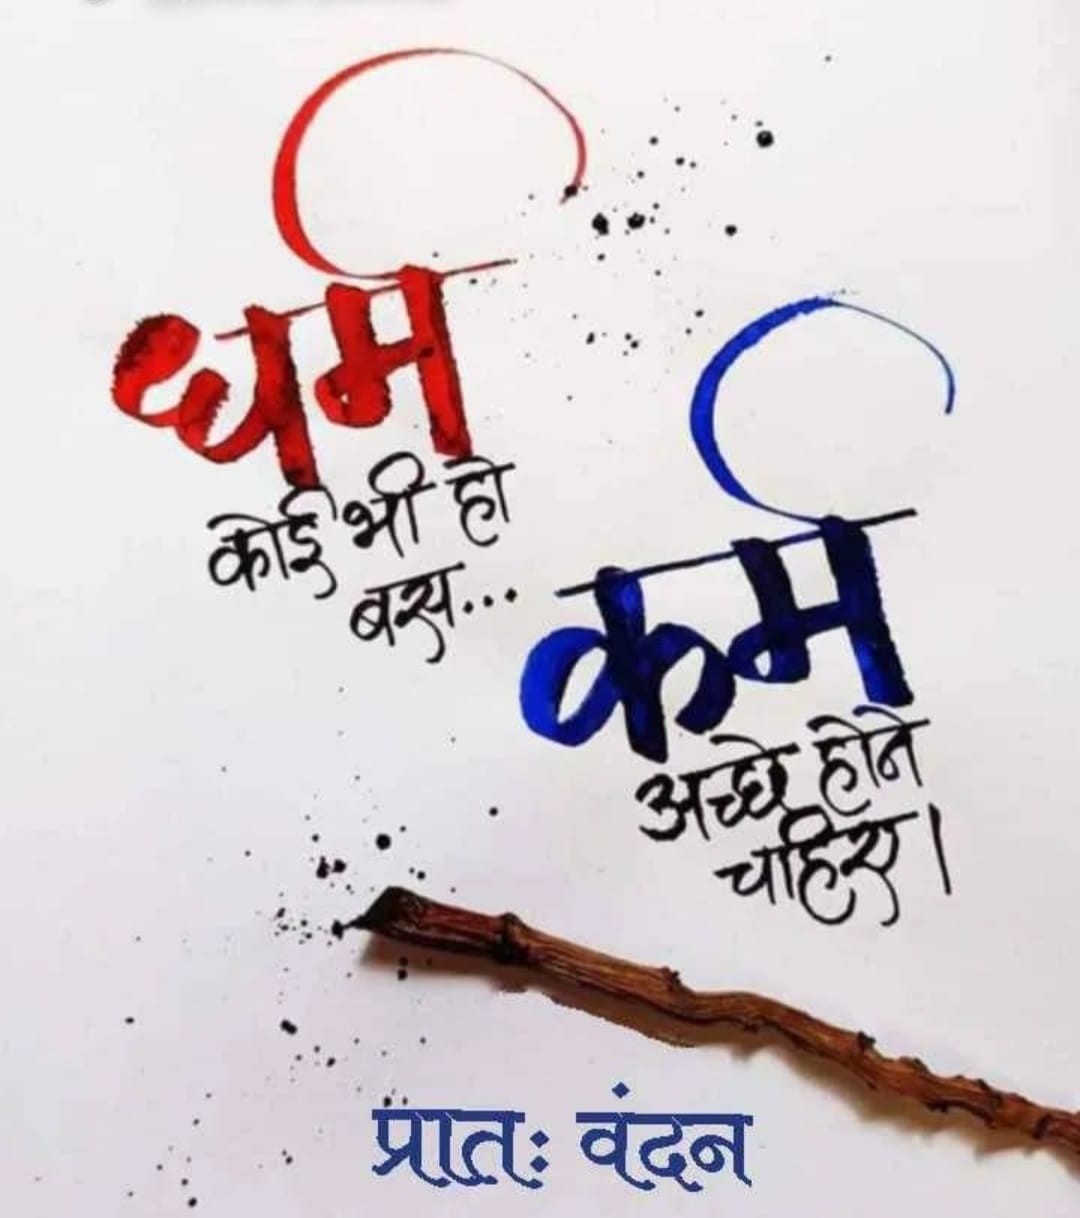 धर्म
कोई भी हो
बस...
कर्म
अच्छे होने
चहिए।
प्रातः वंदन